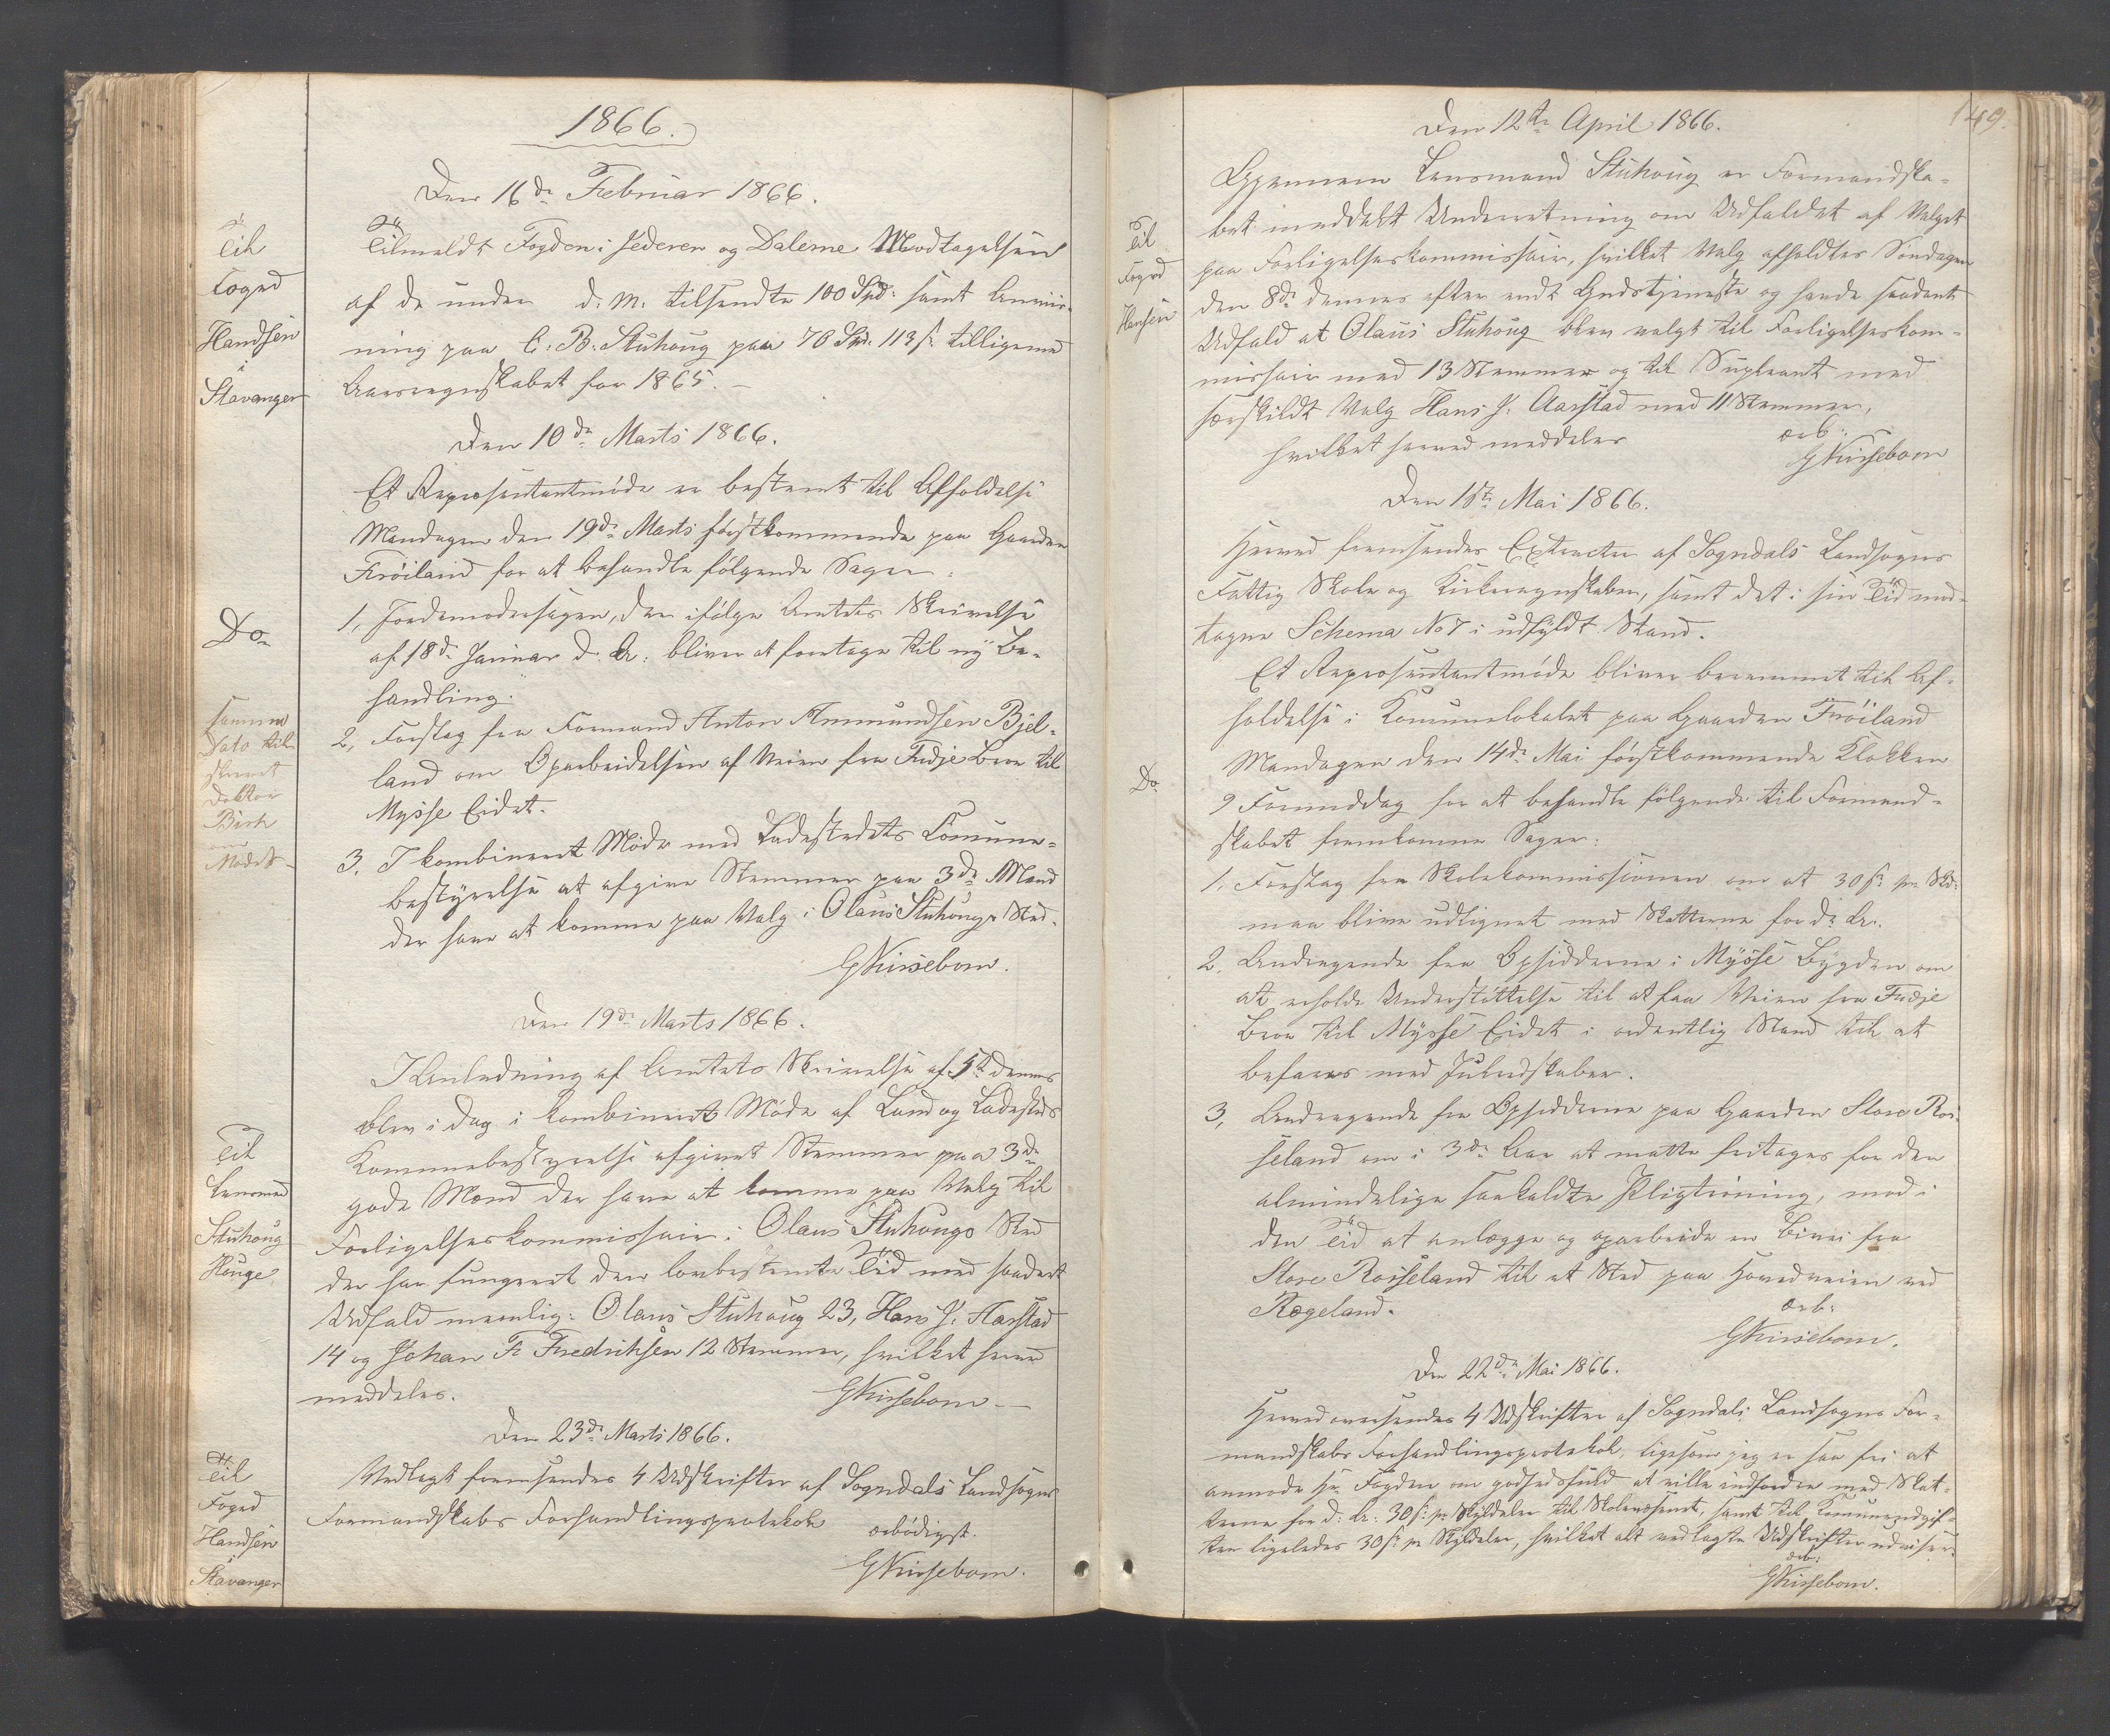 1866.
Den 16de Februar 1866.
Til
Foged
Handsen
i
Stavanger
Tilmeldt Fogden i Jederen og Dalerne Modtagelsen
af de under d. M. tilsendte 100 Spd: samt Anvis-
ning paa C. B. Stuhoug paa 70 Spd. 113 s: tilligemed
Aarsregnskabet for 1865. –
Den 10de Marts 1866.
Do
Et Repræsentantmöde er bestemt til Afholdelse
Mandagen den 19de Marts förstkommende paa Gaarden
Fröiland for at behandle fölgende Sager:
1, Jordemodersagen, der ifölge Amtets Skrivelse
af 18de Januar d. A. bliver at foretage til ny Be-
handling.
Samme
Dato til-
skrevet
Doktor
Birk
om
Mödet
2, Forslag fra Formand Anton Anmundsen Bjel-
land om Oparbeidelsen af Veien fra Fidje Bro til
Mysse Eidet.
3. I kombineret Möde med Ladestedets Comune-
bestyrelse at afgive Stemmer paa 3de Mænd
der have at komme paa Valg i Olaus Stuhougs Sted.
GKirsebom.
Den 19de Marts 1866.
Til
Lensmand
Stuhoug
Houge
I Anledning af Amtets Skrivelse af 5te dennes
blev i Dag i kombineret Möde af Land og Ladesteds
Kommunebestyrelse afgivet Stemmer paa 3de
gode Mænd der have at komme paa Valg til
Forligelseskommissair i Olaus Stuhougs Sted
der har fungeret den lovbestemte Tid med saadant
Udfald nemlig: Olaus Stuhoug 23, Hans J. Aarstad
14 og Johan Fr Fredriksen 12 Stemmer, hvilket herved
meddeles.
GKirsebom –
Den 23de Marts 1866.
Til
Foged
Handsen
i
Stavanger
Vedlagt fremsendes 4 Udskrifter af Sogndals Landsogns
Formandskabs Forhandlingsprotokol
ærbödigst.
GKirsebom.
149.
Den 12te April 1866.
Til
Foged
Hansen
Gjennem Lensmand Stuhoug er Formandska-
bet meddelt Underretning om Udfaldet af Valget
paa Forligelseskommissair, hvilket Valg afholdtes Söndagen
den 8de dennes efter endt Gudstjeneste og havde saadant
Udfald at Olaus Stuhoug blev valgt til Forligelseskom-
missair med 13 Stemmer og til Supleant med
særskildt Valg Hans J. Aarstad med 11 Stemmer,
hvilket herved meddeles
ærb:
GKirsebom
Den 1ste Mai 1866.
Herved fremsendes Extracter af Sogndals Landsogns
Fattig Skole og Kirkeregnskaber, samt det i sin Tid mod-
tagne Schema No 7 i udfyldt Stand.
Do
Et Repræsentantmöde bliver berammet til Af-
holdelse i Komunelokalet paa Gaarden Fröiland
Mandagen den 14de Mai förstkommende Klokken
9 Formiddag for at behandle fölgende til Formand-
skabet fremkomne Sager:
1, Forslag fra Skolekommissionen om at 30 s: pr Skd:
maa blive udlignet med Skatterne for d: A:.
2, Andragende fra Opsidderne i Mysse Bygden om
at erholde Understöttelse til at faa Veien fra Fidje
Bro til Mysse Eidet i ordentlig Stand til at
befares med Juleredskaber.
3, Andragende fra Opsidderne paa Gaarden Store Ros-
seland om i 3de Aar at maatte fritages for den
almindelige saakaldte Pligtroning, mod i
den Tid at anlægge og oparbeide en Bivei fra
Store Rosseland til et Sted paa Hovedveien ved
Rægeland.
ærb:
GKirsebom.
Den 22de Mai 1866.
Herved oversendes 4 Udskrifter af Sogndals Landsogns For-
mandskabs Forhandlingsprotokol, ligesom jeg er saa fri at
anmode Hr. Fogden om godhedsfuld at ville indfordre med Skat-
terne for d: A: 30 s: pr Skyldaler til Skolevæsenet, samt til Komuneudgif-
ter ligeledes 30 s: pr Skyldaler, hvilket alt vedlagte Udskrifter udviser.
ærb:
GKirsebom.